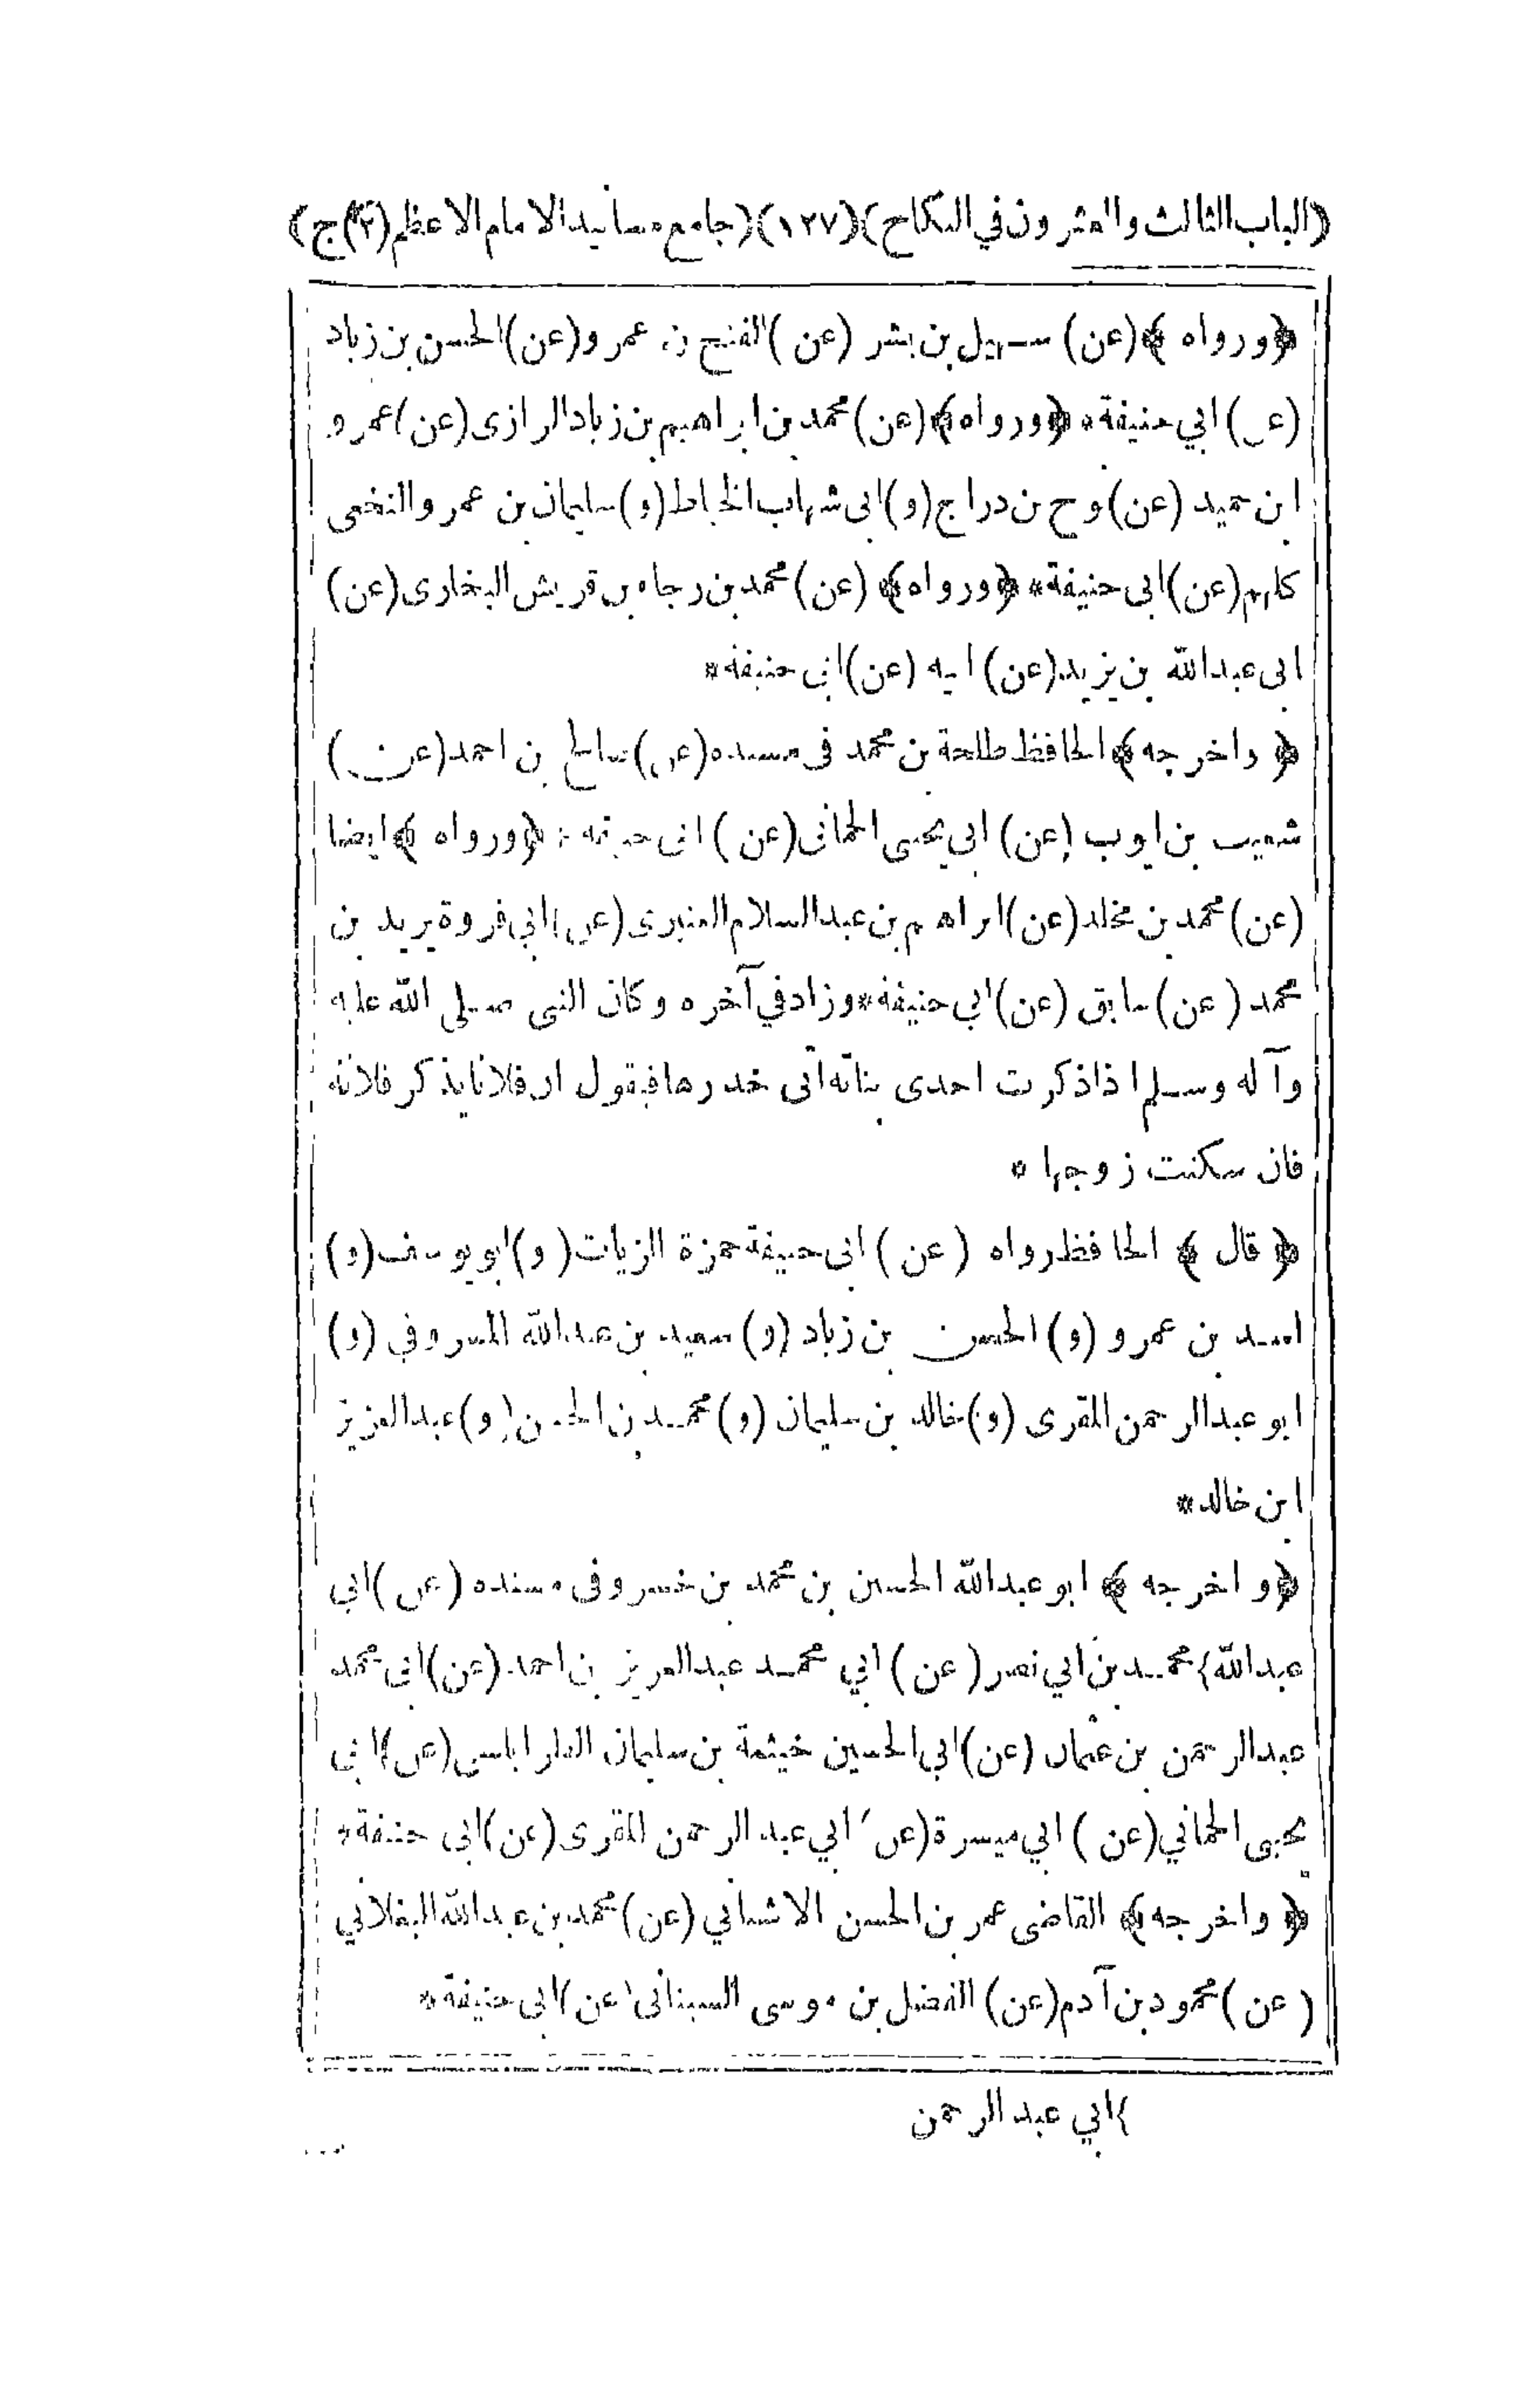 (الباب الثالث والعشرون في النكاح) (١٢٧) (جامع مسانيد الامام الاعظم (٢) ج)
﴿ورواه﴾ (عن) سهيل بن بشر (عن) الفتح بن عمرو (عن) الحسن بن زياد
(عن) ابي حنيفة * ﴿ورواه﴾ (عن) محمد بن ابراهيم بن زياد الرازى (عن) عمرو
ابن حميد (عن) نوح بن دراج (و) ابى شهاب الخياط (و) سليمان بن عمرو النخعى
كلهم (عن) ابى حنيفة * ﴿ورواه﴾ (عن) محمد بن رجاه بن قريش البخارى (عن)
ابى عبدالله بن يزيد (عن) ابيه (عن) ابى حنيفة *
﴿واخرجه﴾ الحافظ طلحة بن محمد فى مسنده (عن) صالح بن احمد (عن)
شعيب بن ايوب (عن) ابى يحيى الحمانى (عن) ابى حنيفة * ﴿ورواه﴾ ايضا
(عن) محمد بن مخلد (عن) ابراهيم بن عبدالسلام العنبرى (عن) ابي فروة يزيد بن
محمد (عن) سابق (عن) ابي حنيفة * وزاد في آخره وكان النبى صلى الله عليه
وآله وسلم اذا ذكرت احدى بناته اتى خدرها فيقول ان فلانا يذكر فلانة
فان سكتت زوجها *
﴿قال﴾ الحافظ رواه (عن) ابى حنيفة حمزة الزيات (و) ابو يوسف (و)
اسد بن عمرو (و) الحسن بن زياد (و) سعيد بن عبدالله المسروقي (و)
ابو عبدالرحمن المقرى (و) خالد بن سليمان (و) محمد بن الحسن (و) عبدالعزيز
ابن خالد *
﴿واخرجه﴾ ابو عبدالله الحسين بن محمد بن خسرو فى مسنده (عن) ابي
عبدالله } محمد بن ابي نصر (عن) ابي محمد عبدالعزيز بن احمد (عن) ابى محمد
عبدالرحمن بن عثمان (عن) ابي الحسين خيثمة بن سليمان الطرابلسى (عن) ابي
يحيى الحماني (عن) ابي ميسرة (عن) ابي عبد الرحمن المقرى (عن) ابى حنيفة *
﴿واخرجه﴾ القاضى عمر بن الحسن الاشناني (عن) محمد بن عبدالله البغلاني
(عن) محمود بن آدم (عن) الفضل بن موسى السينانى (عن) ابى حنيفة *
} ابي عبد الرحمن